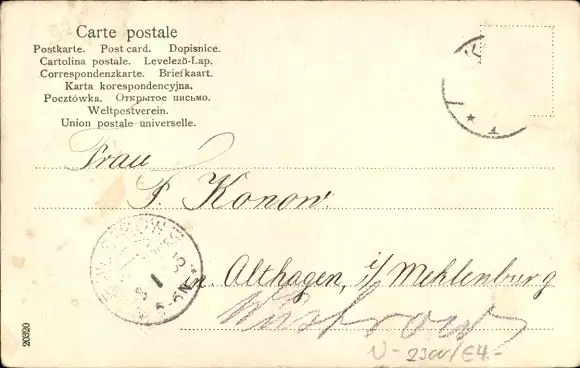 Carte postale
Postkarte. Post card. Dopisnice.
Cartolina postale. Levelező-Lap.
Correspondenzkarte. Briefkaart.
Karta korespondencyjna.
Pocztówka. Открытое письмо.
Weltpostverein.
Union postale universelle.
Frau
F. Konow.
in Althagen, i/ Mehlenburg
N - 2300/€4.-
20320